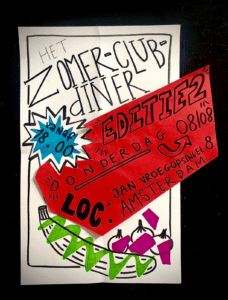 HET
ZOMER-CLUB-
diNER
"EDITIE 2"
"DONDERDAG
08/08
LOC:
JAN VROEGOPSINGEL 8
AMSTERDAM